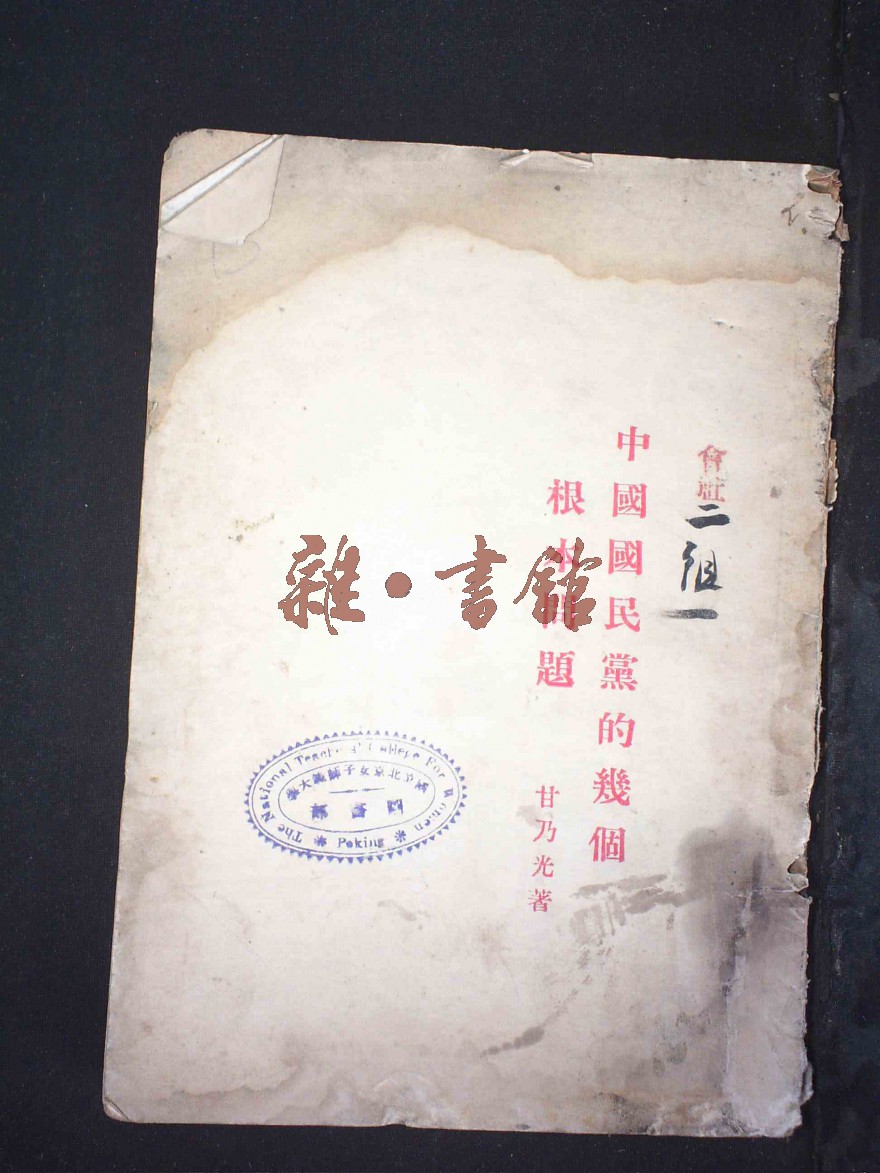 會社二組一
中國國民黨的幾個
根本問題
甘乃光著
雜·書館
The National Teachers' College For Women
國立北京女子師範大學
圖書館
Peking